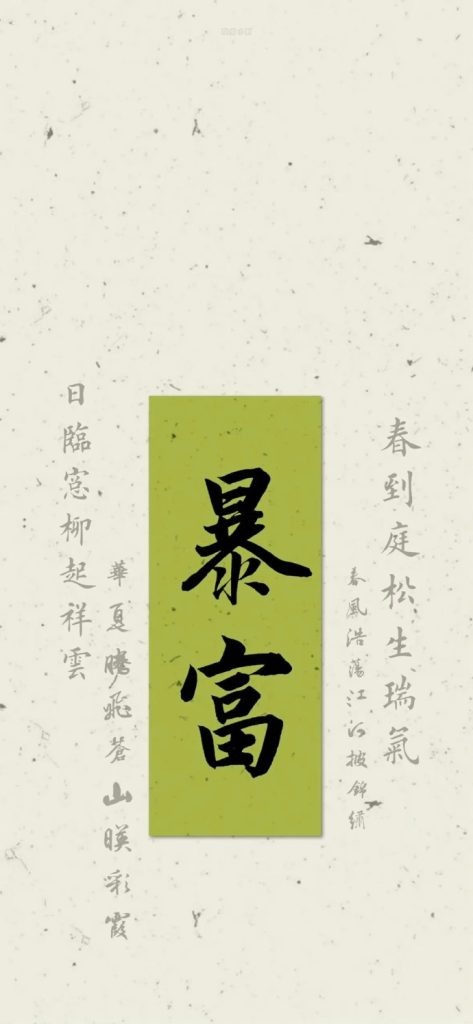 春到庭松生瑞氣
春風浩蕩江河披錦繡
暴富
華夏騰飛蒼山暎彩霞
日臨窓柳起祥雲